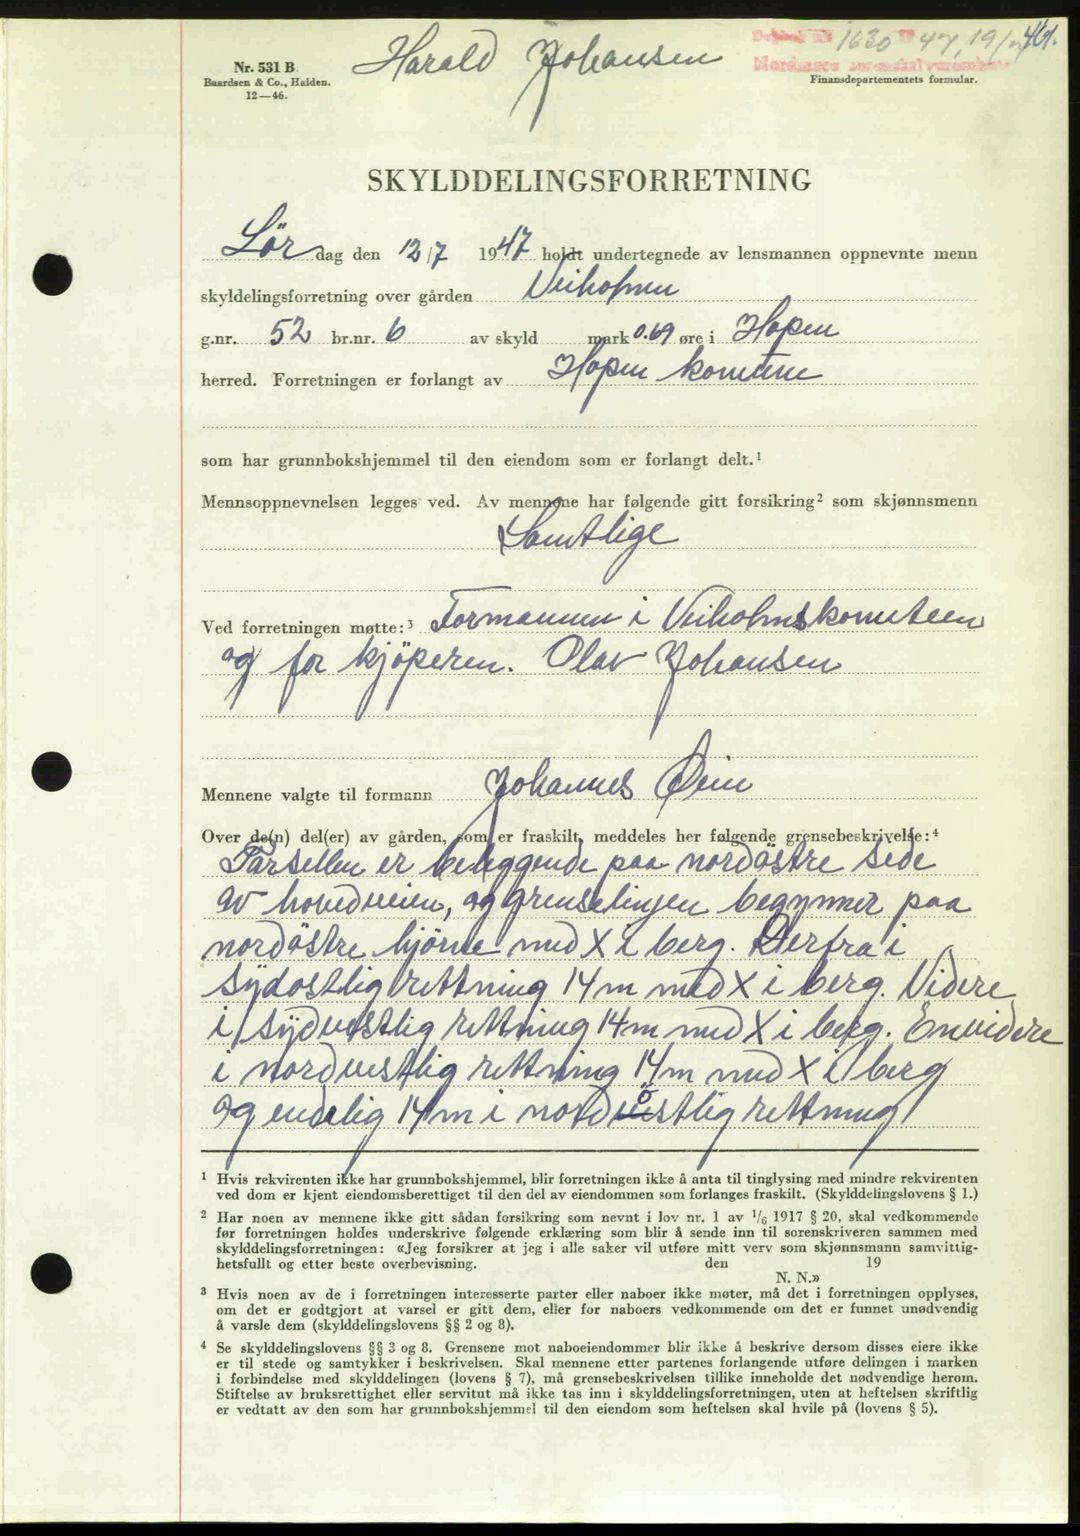 Harald Johansen
Dagbok nr. 1630 19 47, 19/7 461.
Nordmøre sorenskriverembete
Nr. 531 B.
Baardsen & Co., Halden.
12—46.
Finansdepartementets formular.
SKYLDDELINGSFORRETNING
Lørdag den 12/7 1947 holdt undertegnede av lensmannen oppnevnte menn
skyldelingsforretning over gården Veiholmen
g.nr. 52 br.nr. 6 av skyld mark 0.69 øre i Hopen
herred. Forretningen er forlangt av Hopen komune
som har grunnbokshjemmel til den eiendom som er forlangt delt.¹
Mennsoppnevnelsen legges ved. Av mennene har følgende gitt forsikring² som skjønnsmenn
Samtlige
Ved forretningen møtte:³ Formannen i Veiholmskomiteen
og for kjöperen. Olav Johansen
Mennene valgte til formann Johannes Øien
Over de(n) del(er) av gården, som er fraskilt, meddeles her følgende grensebeskrivelse:⁴
Parsellen er beleggende paa nordöstre side
av hovedveien, og grenselinjen begynner paa
nordöstre hjörne med X i berg. Derfra i
sydostlig rettning 14 m med X i berg. Videre
i sydvestlig rettning 14 m med X i berg. Envidere
i nordvestlig rettning 14 m med X i berg
og endelig 14 m i nordöstlig rettning
¹ Hvis rekvirenten ikke har grunnbokshjemmel, blir forretningen ikke å anta til tinglysing med mindre rekvirenten
ved dom er kjent eiendomsberettiget til den del av eiendommen som forlanges fraskilt. (Skylddelingslovens § 1.)
² Har noen av mennene ikke gitt sådan forsikring som nevnt i lov nr. 1 av 1/6 1917 § 20, skal vedkommende
før forretningen holdes underskrive følgende erklæring som blir å sende inn til sorenskriveren sammen med
skylddelingsforretningen: «Jeg forsikrer at jeg i alle saker vil utføre mitt verv som skjønnsmann samvittig-
hetsfullt og etter beste overbevisning. den 19
N. N.»
³ Hvis noen av de i forretningen interesserte parter eller naboer ikke møter, må det i forretningen opplyses,
om det er godtgjort at varsel er gitt dem, eller for naboers vedkommende om det er funnet unødvendig
å varsle dem (skylddelingslovens §§ 2 og 8).
⁴ Se skylddelingslovens §§ 3 og 8. Grensene mot naboeiendommer blir ikke å beskrive dersom disses eiere ikke
er til stede og samtykker i beskrivelsen. Skal mennene etter partenes forlangende utføre delingen i marken
i forbindelse med skylddelingen (lovens § 7), må grensebeskrivelsen tillike inneholde det nødvendige herom.
Stiftelse av bruksrettighet eller servitut må ikke tas inn i skylddelingsforretningen, uten at heftelsen skriftlig
er vedtatt av den som har grunnbokshjemmel til den eiendom som heftelsen skal hvile på (lovens § 5).